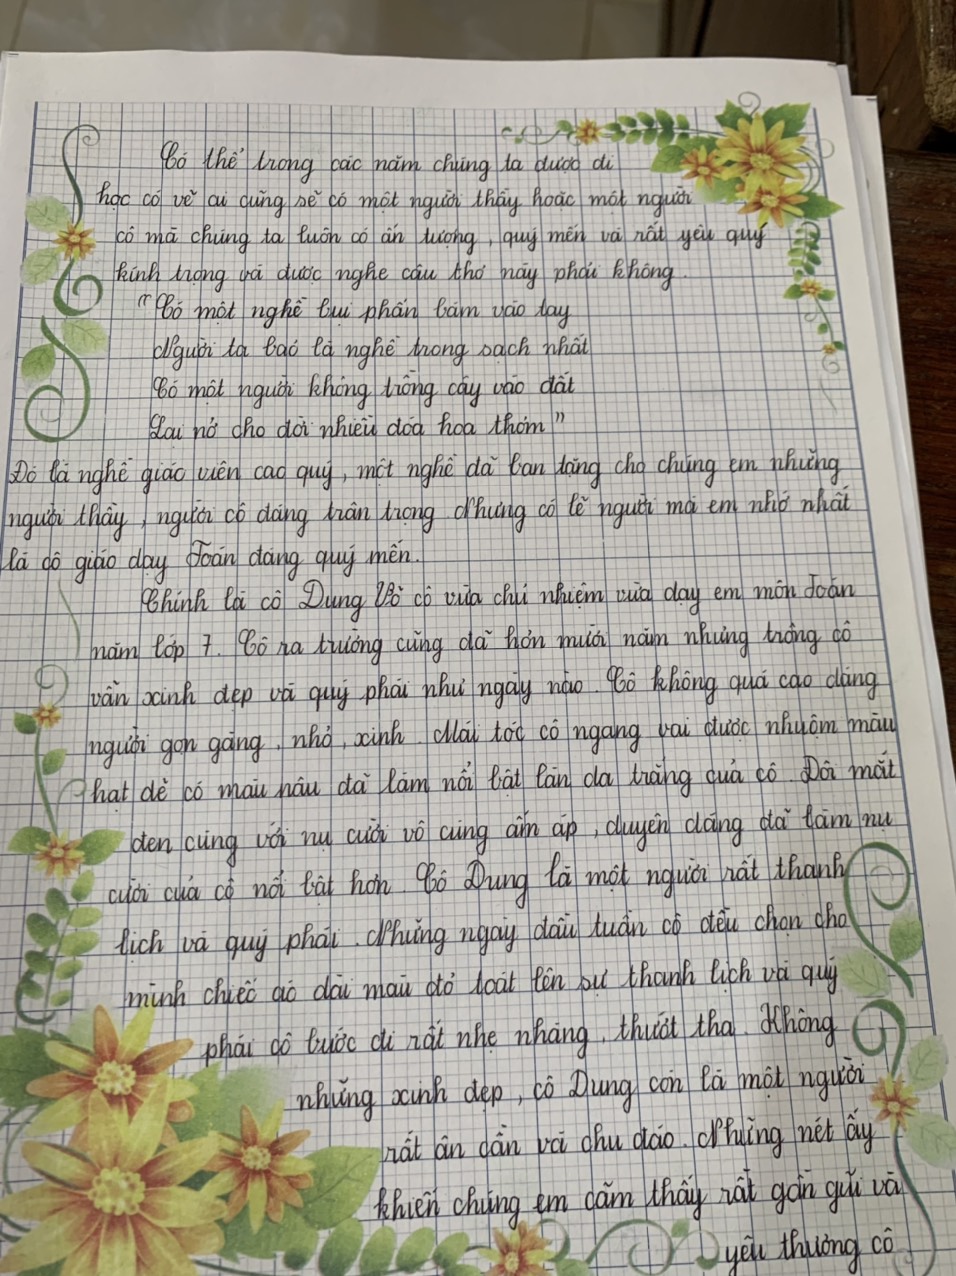 Có thể trong các năm chúng ta được đi
học có vẽ ai cũng sẽ có một người thầy hoặc một người
cô mà chúng ta luôn có ấn tượng, quý mến và rất yêu quý
kính trọng và được nghe câu thơ này phải không.
"Có một nghề bụi phấn bám vào tay
Người ta bảo là nghề trong sạch nhất
Có một người không trồng cây vào đất
Lại nở cho đời nhiều đóa hoa thơm"
Đó là nghề giáo viên cao quý, một nghề đã ban tặng cho chúng em những
người thầy, người cô đáng trân trọng Nhưng có lẽ người mà em nhớ nhất
là cô giáo dạy Toán đáng quý mến.
Chính là cô Dung Vì cô vừa chủ nhiệm vừa dạy em môn Toán
năm lớp 7. Cô ra trường cũng đã hơn mười năm nhưng trông cô
vẫn xinh đẹp và quý phái như ngày nào. Cô không quá cao dáng
người gọn gàng, nhỏ, xinh. Mái tóc cô ngang vai được nhuộm màu
hạt dẻ có màu nâu đã làm nổi bật làn da trắng của cô. Đôi mắt
đen cùng với nụ cười vô cùng ấm áp, duyên dáng đã làm nụ
cười của cô nổi bật hơn. Cô Dung là một người rất thanh
lịch và quý phái. Những ngày đầu tuần cô đều chọn cho
mình chiếc áo dài màu đỏ toát lên sự thanh lịch và quý
phái cô bước đi rất nhẹ nhàng, thướt tha. Không
những xinh đẹp, cô Dung còn là một người
rất ân cần và chu đáo. Những nét ấy
khiến chúng em cảm thấy rất gần gũi và
yêu thương cô